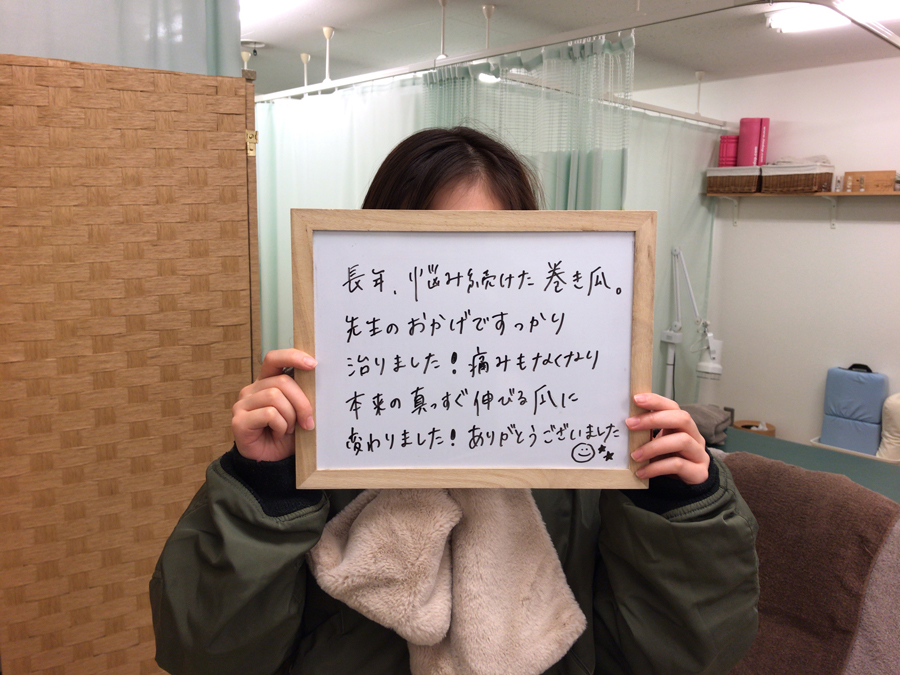 長年、悩み続けた巻き爪。
先生のおかげですっかり
治りました！痛みもなくなり
本来の真っすぐ伸びる爪に
変わりました！ありがとうございました